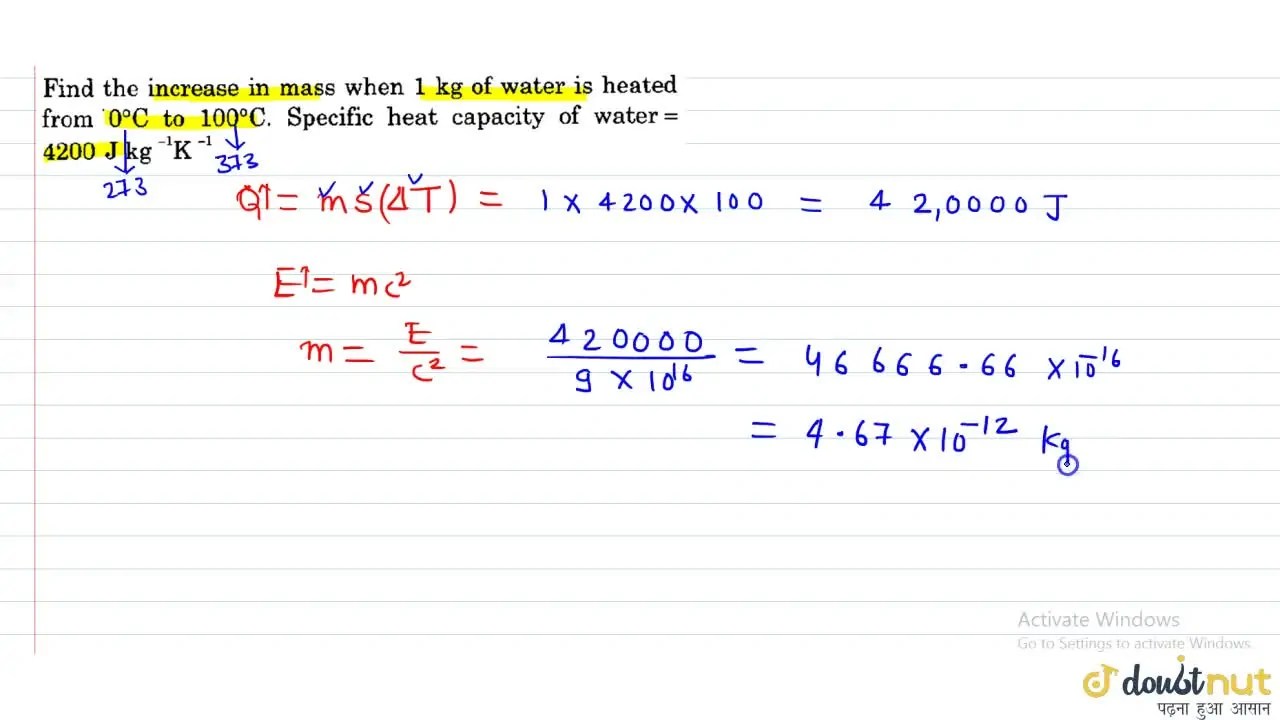 Find the increase in mass when 1 kg of water is heated
from 0°C to 100°C. Specific heat capacity of water =
4200 J kg⁻¹K⁻¹
273 373
Q↑ = ms(ΔT) = 1 × 4200 × 100 = 42,0000 J
E↑ = mc²
m = E/c² = 420000/9 × 10¹⁶ = 46666.66 × 10⁻¹⁶
= 4.67 × 10⁻¹² kg
Activate Windows
Go to Settings to activate Windows.
doubtnut
पढ़ना हुआ आसान